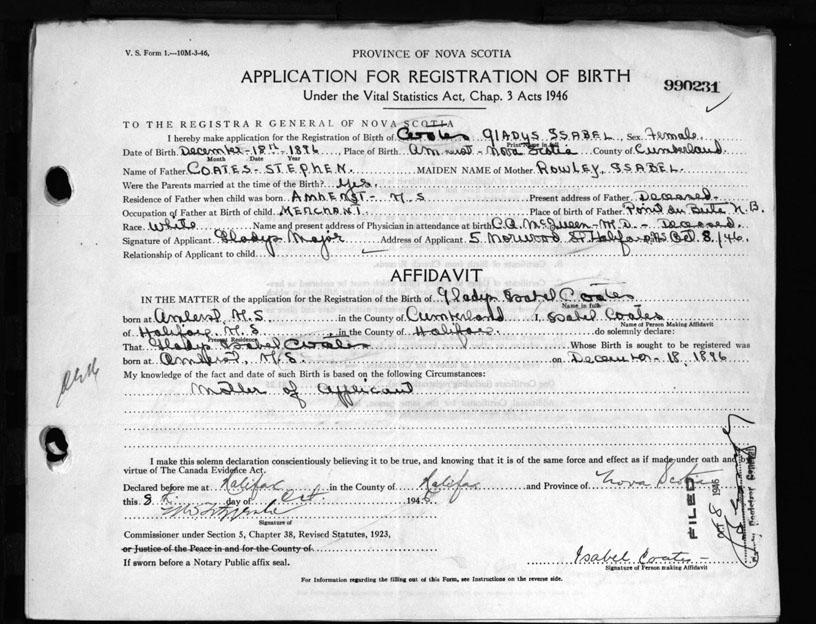 V. S. Form 1.—10M-3-46,
PROVINCE OF NOVA SCOTIA
APPLICATION FOR REGISTRATION OF BIRTH
990231
Under the Vital Statistics Act, Chap. 3 Acts 1946
TO THE REGISTRAR GENERAL OF NOVA SCOTIA
I hereby make application for the Registration of Birth of Coates GLADYS ISABEL, Sex Female.
Print Name in full
Date of Birth December - 18th - 1896 Place of Birth Amherst - Nova Scotia County of Cumberland
Month Date Year
Name of Father COATES - STEPHEN. MAIDEN NAME of Mother ROWLEY, ISABEL.
Were the Parents married at the time of the Birth? Yes.
Residence of Father when child was born AMHERST - N. S Present address of Father Deceased
Occupation of Father at Birth of child MERCHANT. Place of birth of Father Point du Bute N.B.
Race White Name and present address of Physician in attendance at birth C.A. McQueen - M.D. - Deceased.
Signature of Applicant Gladys Major Address of Applicant 5 Norwood St Halifax N.S. Oct. 8/46.
Relationship of Applicant to child
AFFIDAVIT
IN THE MATTER of the application for the Registration of the Birth of Gladys Isabel Coates
Name in full
born at Amherst, N.S. in the County of Cumberland I, Isabel Coates
Name of Person Making Affidavit
of Halifax, N.S. in the County of Halifax do solemnly declare:
Present Residence
That Gladys Isabel Coates Whose Birth is sought to be registered was
born at Amherst, N.S. on December - 18, 1896
My knowledge of the fact and date of such Birth is based on the following Circumstances:
Mother of applicant
I make this solemn declaration conscientiously believing it to be true, and knowing that it is of the same force and effect as if made under oath and by
virtue of The Canada Evidence Act.
Declared before me at Halifax in the County of Halifax and Province of Nova Scotia
this 8th day of Oct. 1946
Signature of
Commissioner under Section 5, Chapter 38, Revised Statutes, 1923,
or Justice of the Peace in and for the County of
If sworn before a Notary Public affix seal.
Isabel Coates
Signature of Person making Affidavit
For Information regarding the filling out of this Form, see Instructions on the reverse side.
FILED
OCT 8 1946